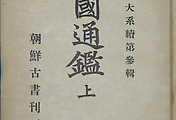 大系續第參輯
國通鑑 上
朝鮮古書刊